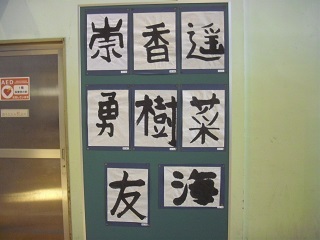 崇香遥
勇樹菜
友海
AED